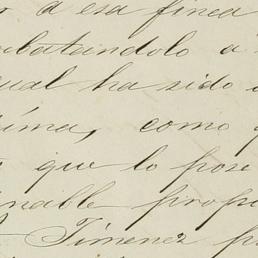 a esa finca
batandolo a
ual ha sido
ima, como
que lo pose
nable propi
Jimenez p